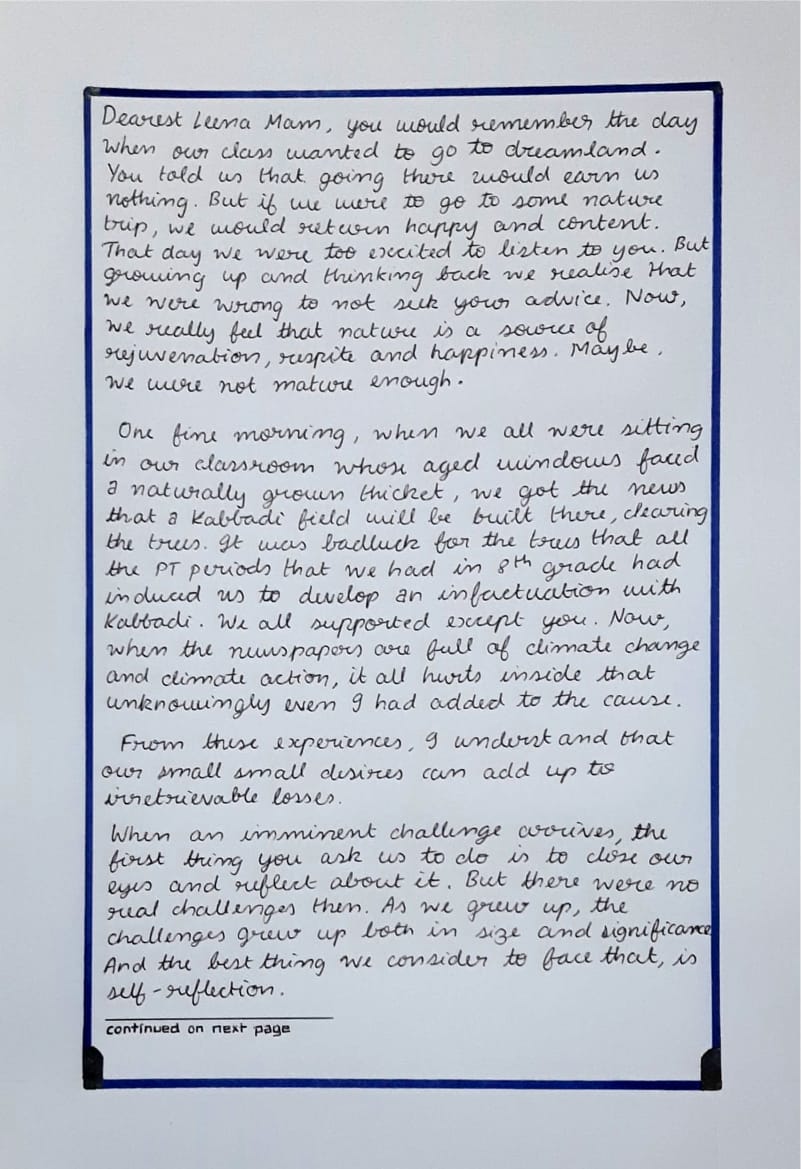 Dearest Leena Mam, you would remember the day
when our class wanted to go to dreamland.
You told us that going there would earn us
nothing. But if we were to go to some nature
trip, we would return happy and content.
That day we were too excited to listen to you. But
growing up and thinking back we realise that
we were wrong to not seek your advice. Now,
we really feel that nature is a source of
rejuvenation, respite and happiness. Maybe,
we were not mature enough.
One fine morning, when we all were sitting
in our classroom whose aged windows faced
a naturally grown thicket, we got the news
that a Kabbadi field will be built there, clearing
the trees. It was badluck for the trees that all
the PT periods that we had in 8th grade had
induced us to develop an infactuation with
Kabbadi. We all supported except you. Now,
when the newspapers are full of climate change
and climate action, it all hurts inside that
unknowingly even I had added to the cause.
From these experiences, I understand that
our small small desires can add up to
irretrievable losses.
When an imminent challenge arrives, the
first thing you ask us to do is to close our
eyes and reflect about it. But there were no
real challenges then. As we grew up, the
challenges grew up both in size and significance
And the best thing we consider to face that, is
self-reflection.
continued on next page